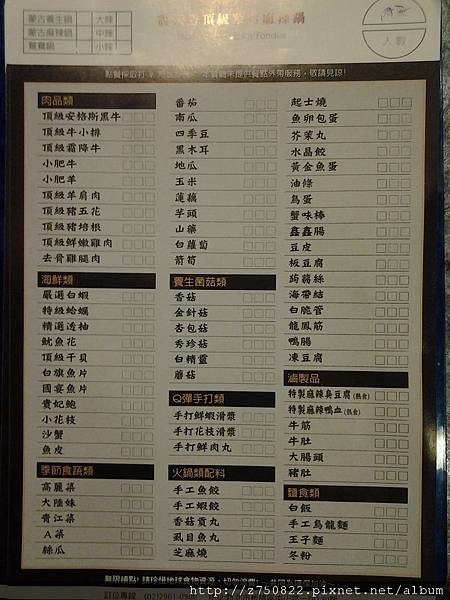 蒙古養生鍋
蒙古麻辣鍋
鴛鴦鍋
大辣
中辣
小辣
頂級
麻辣鍋
人數
肉品類
頂級安格斯黑牛
頂級牛小排
頂級霜降牛
小肥牛
小肥羊
頂級羊肩肉
頂級豬五花
頂級豬培根
頂級鮮嫩雞肉
去骨雞腿肉
海鮮類
嚴選白蝦
特級蛤蠣
精選透抽
魷魚花
頂級干貝
白旗魚片
國宴魚片
貴妃鮑
小花枝
沙蟹
魚皮
季節食蔬類
高麗菜
大陸妹
青江菜
A菜
絲瓜
番茄
南瓜
四季豆
黑木耳
地瓜
玉米
蓮藕
芋頭
山藥
白蘿蔔
箭筍
養生菌菇類
香菇
金針菇
杏包菇
秀珍菇
白精靈
蘑菇
Q彈手打類
手打鮮蝦滑漿
手打花枝滑漿
手打鮮肉丸
火鍋類配料
手工魚餃
手工蝦餃
香菇貢丸
虱目魚丸
芝麻燒
起士燒
魚卵包蛋
芥菜丸
水晶餃
黃金魚蛋
油條
鳥蛋
蟹味棒
鑫鑫腸
豆皮
板豆腐
蒟蒻絲
海帶結
白脆管
龍鳳筋
鴨腸
凍豆腐
滷製品
特製麻辣臭豆腐(熟食)
特製麻辣鴨血(熟食)
牛筋
牛肚
大腸頭
豬肚
麵食類
白飯
手工烏龍麵
王子麵
冬粉
訂位專線
album
http://z750822.pixnet.net/album